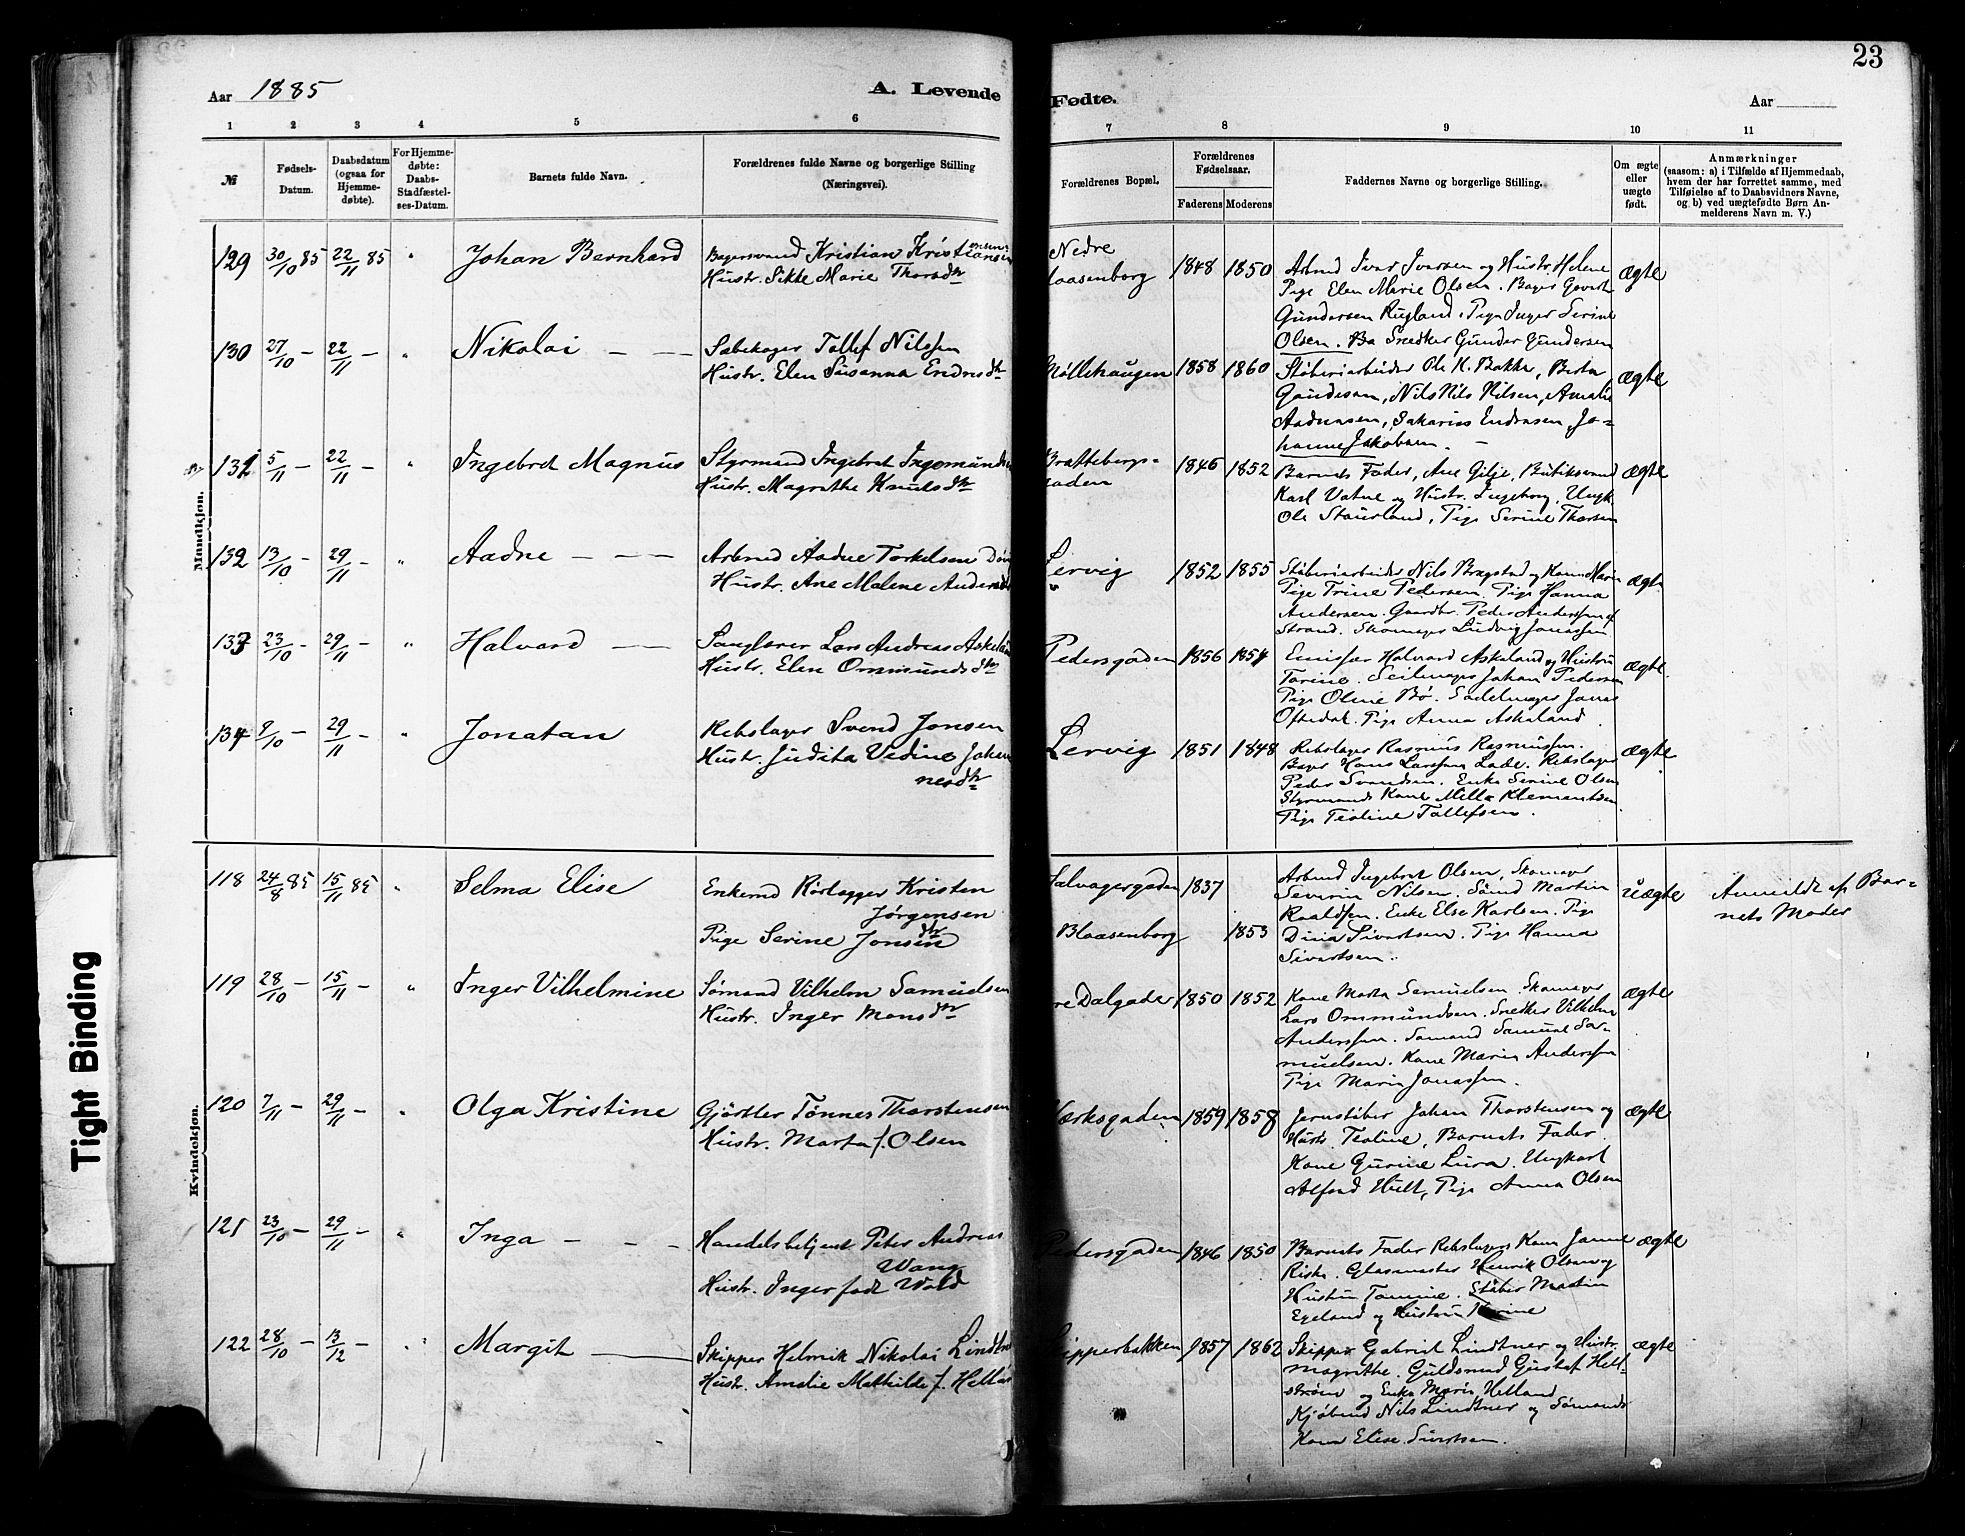 23
Aar 1885
A. Levende
Fødte.
Aar
1 2 3 4 5 6 7 8 9 10 11
№
Fødsels-
Datum.
Daabsdatum
(ogsaa for
Hjemme-
døbte).
For Hjemme-
døbte:
Daabs-
Stadfæstel-
ses-Datum.
Barnets fulde Navn.
Forældrenes fulde Navne og borgerlige Stilling
(Næringsvei).
Forældrenes Bopæl.
Forældrenes
Fødselsaar.
Faderens Moderens
Faddernes Navne og borgerlige Stilling.
Om ægte
eller
uægte
født.
Anmærkninger
(saasom: a) i Tilfælde af Hjemmedaab,
hvem der har forrettet samme, med
Tilføielse af to Daabsvidners Navne,
og b) ved uægtefødte Børn An-
melderens Navn m. V.)
Mandkjøn.
129 30/10 85 22/11 85 " Johan Bernhard
Kristian Kristiansen
Hustr. Sikke Marie Thorsdtr
Nedre
laasenborg
1848 1850
Arbmd Ivar Iversen og Hustr. Helene
Pige Elen Marie Olsen. Bager
Gundersen Rugland. Pige Inger Serine
Olsen. Snedker Gunder Gundersen
ægte
130 27/10 — 22/11 — " Nikolai — —
Sæbekoger Tollef Nilssen
Hustr. Elen Susanna Endresdtr
Møllehaugen 1858 1860
Støberiarbeider Ole K. Bakke, Berta
Gundersen, Nils Nils Nilsen, Amalie
Aadnesen, Sakarias Endresen, Jo-
hanne Jakobsen. —
ægte
131 5/11 — 22/11 — " Ingebret Magnus
Styrmand Ingebret Ingemundsen
Hustr. Magrethe Knudsdtr
Brattebergs-
gaden
1846 1852
Barnets Fader, Ane Gilje, Butiksmand
Karl Vatne og Hustr. Ingeborg, Ungk.
Ole Staurland, Pige Serine Thorsen
ægte
132 13/10 — 29/11 — " Aadne — — —
Arbmd Aadne Torkelsen
Hustr. Ane Malene Andersdtr
Lervig
"
1852 1855
Støberiarbeider Nils Brogstad og Kone Marie
Pige Trine Pedersen. Pige Hanna
Andersen. Gaardbr. Peder Anderssen
Strand. Skomager Ludvig Jonassen
ægte
133 23/10 — 29/11 — " Halvard —
Sanglærer Lars Andreas Askeland
Hustr. Elen Ommundsdtr
Pedersgaden 1856 1854
Emissær Halvard Askeland og Hustru
Tarine. Seilmager Johan Pedersen
Pige Oline Bø. Sadelmager Jonas
Oftedal. Pige Anna Askeland.
ægte.
134 9/10 — 29/11 — " Jonatan
Rebslager Svend Jonsen
Hustr. Judita Vedine Johan-
nesdtr
Lervig 1851 1848
Rebslager Rasmus Rasmussen.
Bager Hans Larssen Lade. Rebslager
Peder Svendsen. Enke Serine Olsen
Styrmands Kone Milla Klementsen.
Pige Teoline Tollefsen.
ægte
Kvindekjøn.
118 24/8 85 15/11 85 " Selma Elise
Enkemd Rørlægger Kristen
Jørgensen
Pige Serine Jonsdtr
Salvagergaden 1837
Blaasenborg 1853
Arbmd Ingebret Olsen, Skomager
Severin Nilsen, Sømd Martin
Roaldsen. Enke Else Karlsen. Pige
Dina Sivertsen. Pige Hanna
Sivertsen.
uægte
Anmeldt af Bar-
nets Moder
119 28/10 — 15/11 — " Inger Vilhelmine
Sømand Vilhelm Samuelsen
Hustr. Inger Monsdtr
re Dalgaden 1850 1852
Kone Marta Samuelsen. Skomager
Lars Ommundsen. Snedker Vilhelm
Anderssen. Sømand Samuel Sa-
muelsen. Kone Marie Anderssen
Pige Marie Jonassen.
ægte
120 7/11 — 29/11 — " Olga Kristine
Gjørtler Tønnes Thorstensen
Hustr. Marta f. Olsen
Værksgaden 1859 1858
Jernstøber Johan Thorstensen og
Hustr. Teoline, Barnets Fader.
Kone Gurine Lura. Ungkarl
Alfred Hult, Pige Anna Olsen
ægte
121 23/10 — 29/11 — " Inga — — —
Handelsbetjent Peter Andreas
Wang
Hustr. Inger født Wold
Pedersgaden 1846 1850
Barnets Fader Rebslagers Kone Janne
Riske. Glasmester Henrik Olsen og
Hustru Tomine. Støber Martin
Egeland og Hustru
ægte
122 28/10 — 13/12 — " Margit —
Skipper Helmik Nikolai Lindtner
Hustr. Amalie Mathilde f. Helland
Skipperbakken 1857 1862
Skipper Gabriel Lindtner og Hustr.
Magrethe. Guldsmed Gustaf Hell-
strøm og Enke Marie Helland
Kjøbmd Nils Lindtner og Sømands
Kone Elise Sivertsen.
ægte
Tight Binding